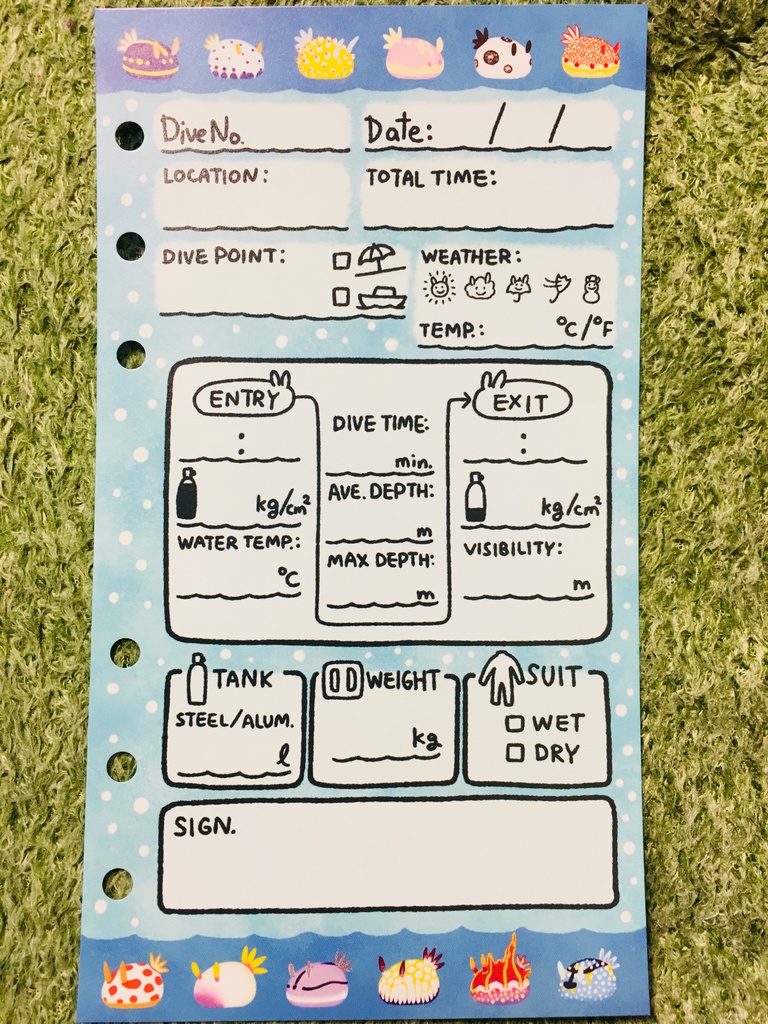 Dive No.
Date: / /
LOCATION:
TOTAL TIME:
DIVE POINT:
WEATHER:
TEMP.: °C/°F
ENTRY
EXIT
:
:
DIVE TIME:
min.
kg/cm²
AVE. DEPTH:
m
kg/cm²
WATER TEMP.:
°C
MAX DEPTH:
m
VISIBILITY:
m
TANK
STEEL/ALUM.
ℓ
WEIGHT
kg
SUIT
WET
DRY
SIGN.